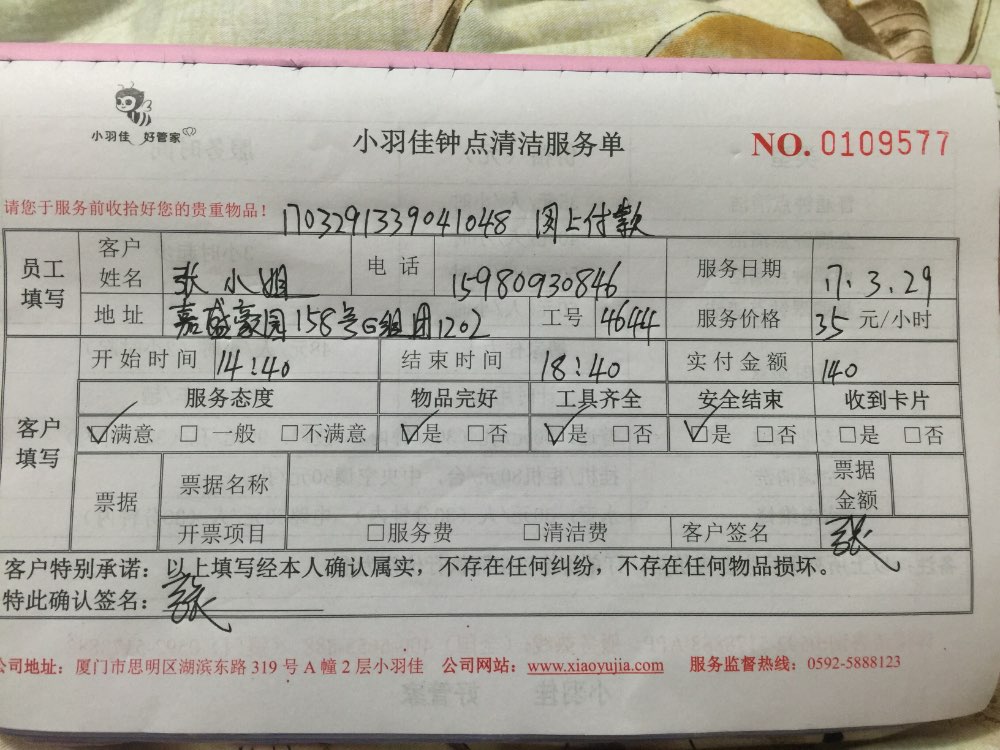 小羽佳 好管家
小羽佳钟点清洁服务单
NO. 0109577
请您于服务前收拾好您的贵重物品！
170329133904 1048 网上付款
员工填写 客户姓名 张小姐 电话 15980930846 服务日期 17.3.29
地址 嘉盛豪园158号G组团1202 工号 4644 服务价格 35 元/小时
客户填写 开始时间 14:40 结束时间 18:40 实付金额 140
服务态度 物品完好 工具齐全 安全结束 收到卡片
☑满意 □一般 □不满意 ☑是 □否 ☑是 □否 ☑是 □否 □是 □否
票据 票据名称 票据金额
开票项目 □服务费 □清洁费 客户签名 张
客户特别承诺：以上填写经本人确认属实，不存在任何纠纷，不存在任何物品损坏。
特此确认签名：张
公司地址：厦门市思明区湖滨东路 319 号 A 幢 2 层小羽佳 公司网站：www.xiaoyujia.com 服务监督热线：0592-5888123